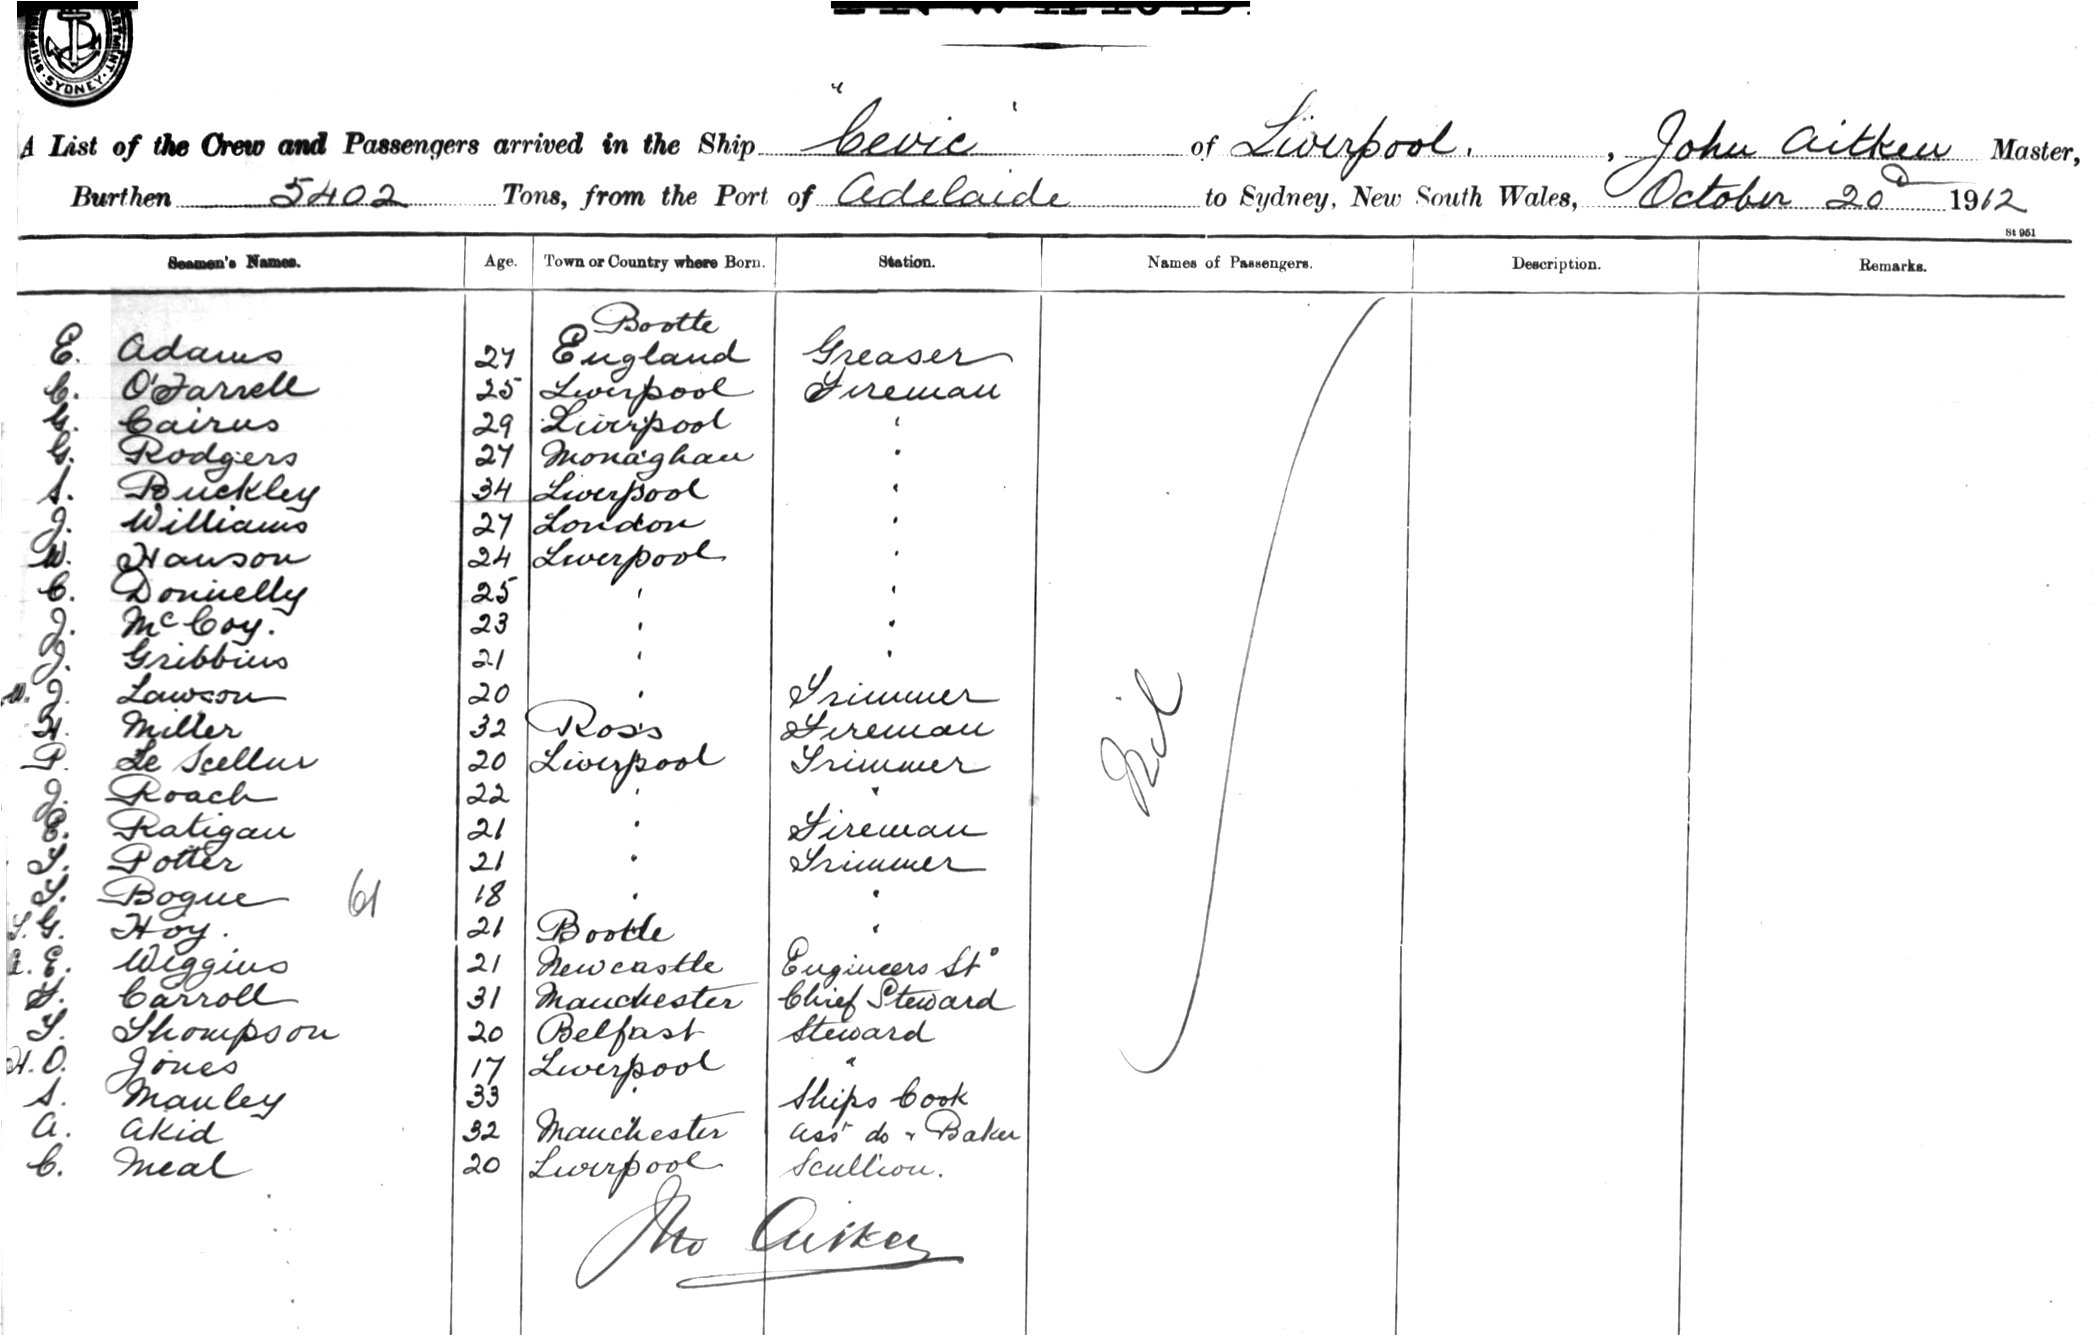 SHIPPING DEPARTMENT SYDNEY
A List of the Crew and Passengers arrived in the Ship "Cevic" of Liverpool, John Aitken Master,
Burthen 5402 Tons, from the Port of Adelaide to Sydney, New South Wales, October 20 1912
St 951
Seamen's Names. Age. Town or Country where Born. Station. Names of Passengers. Description. Remarks.
Bootle
E. Adams 27 England Greaser
C. O'Farrell 25 Liverpool Fireman
G. Cairns 29 Liverpool "
G. Rodgers 27 Monaghan "
S. Buckley 34 Liverpool "
J. Williams 27 London "
W. Hanson 24 Liverpool "
C. Donnelly 25 " "
J. McCoy. 23 " "
J. Gribbins 21 " "
W. J. Lawson 20 " Trimmer
H. Miller 32 Ross Fireman
P. Le Scellur 20 Liverpool Trimmer
J. Roach 22 " "
E. Ratigan 21 " Fireman
T. Potter 21 " Trimmer
T. Bogue 61 18 " "
T. G. Hoy. 21 Bootle "
E. Wiggins 21 Newcastle Engineers St
F. Carroll 31 Manchester Chief Steward
T. Thompson 20 Belfast Steward
H. O. Jones 17 Liverpool "
S. Manley 33 " Ships Cook
A. Akid 32 Manchester Asst do & Baker
C. Meal 20 Liverpool Scullion.
Nil
Jno Aitken